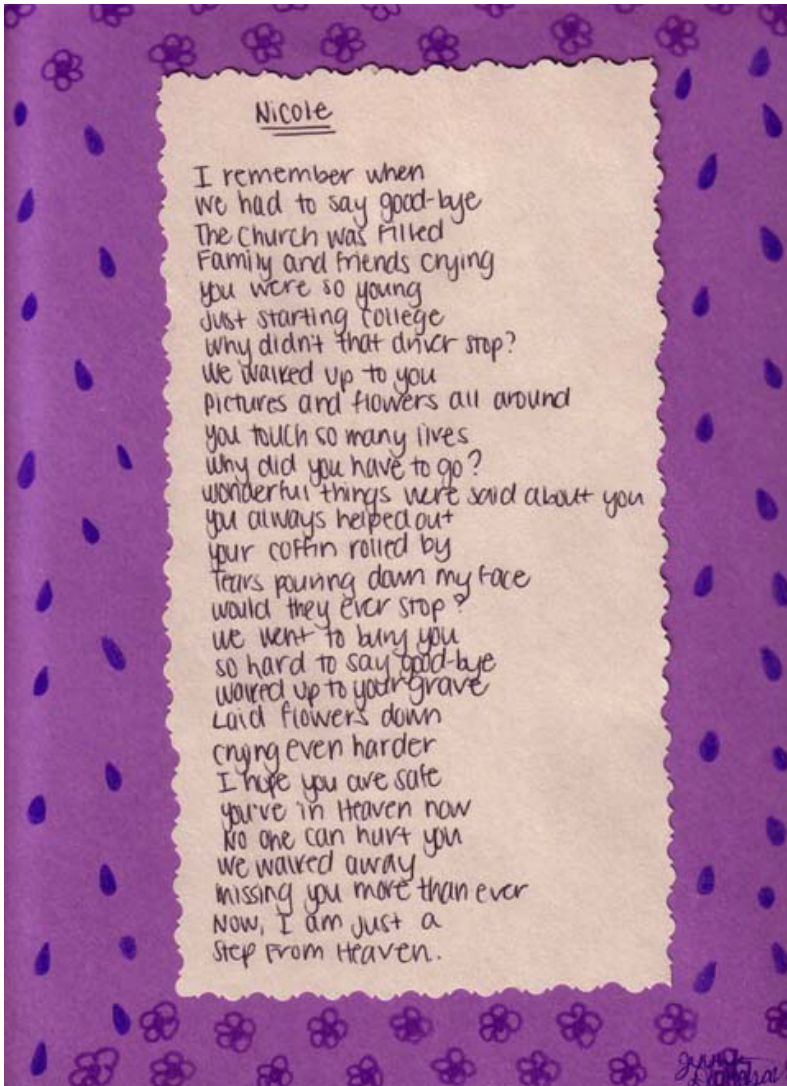 Nicole
I remember when
we had to say good-bye
The Church was filled
Family and friends crying
you were so young
just starting college
why didn't that driver stop?
We walked up to you
pictures and flowers all around
you touch so many lives
why did you have to go?
wonderful things were said about you
you always helped out
your coffin rolled by
Tears pouring down my face
would they ever stop?
we went to bury you
so hard to say good-bye
walked up to your grave
Laid flowers down
crying even harder
I hope you are safe
you're in Heaven now
No one can hurt you
we walked away
missing you more than ever
Now, I am just a
Step From Heaven.